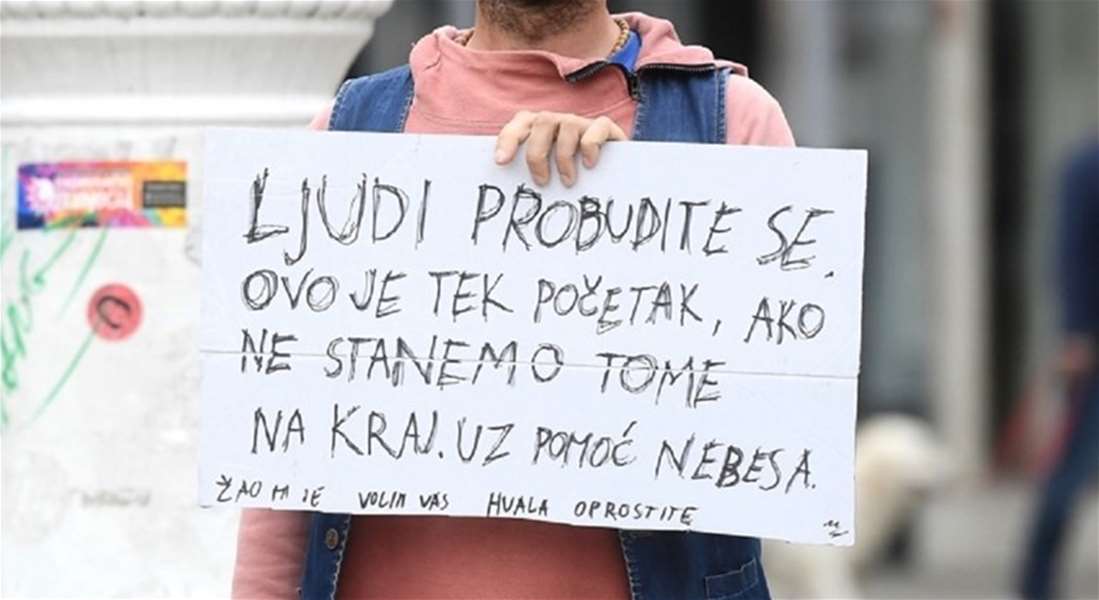 LJUDI PROBUDITE SE.
OVO JE TEK POČETAK, AKO
NE STANEMO TOME
NA KRAJ. UZ POMOĆ NEBESA.
ŽAO MI JE VOLIM VAS HVALA OPROSTITE